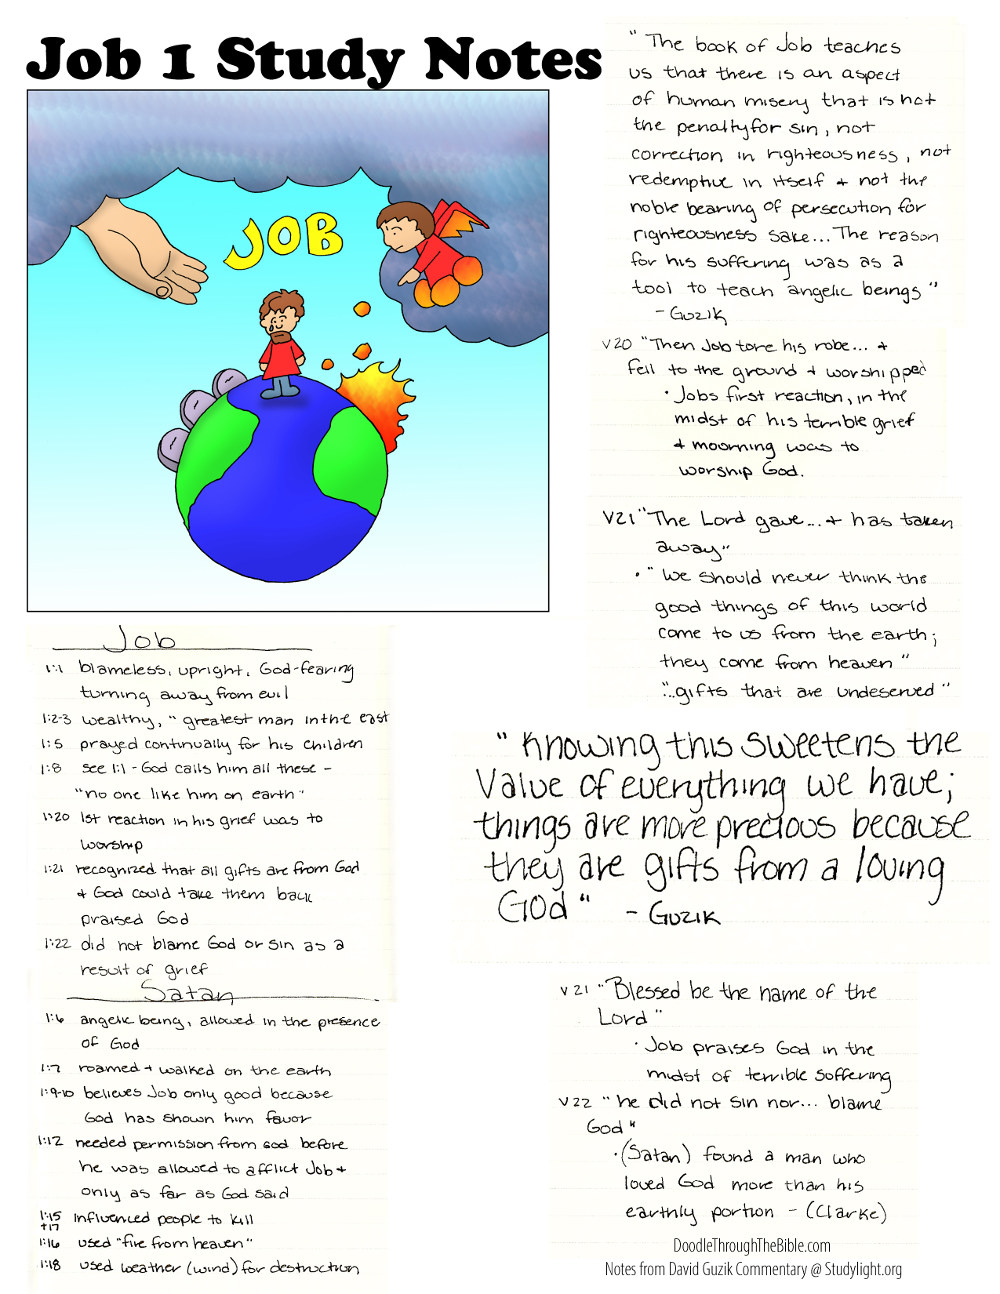 Job 1 Study Notes
JOB
"The book of Job teaches
us that there is an aspect
of human misery that is not
the penalty for sin, not
correction in righteousness, not
redemptive in itself + not the
noble bearing of persecution for
righteousness sake... The reason
for his suffering was as a
tool to teach angelic beings"
- Guzik
v20 "Then Job tore his robe... +
fell to the ground + worshipped
• Jobs first reaction, in the
midst of his terrible grief
+ mourning was to
worship God.
v21 "The Lord gave... + has taken
away"
• "we should never think the
good things of this world
come to us from the earth;
they come from heaven"
"...gifts that are undeserved"
"Knowing this sweetens the
value of everything we have;
things are more precious because
they are gifts from a loving
God" - Guzik
v21 "Blessed be the name of the
Lord"
• Job praises God in the
midst of terrible suffering
v22 "he did not sin nor... blame
God"
• (Satan) found a man who
loved God more than his
earthly portion - (Clarke)
Job
1:1 blameless, upright, God-fearing
turning away from evil
1:2-3 wealthy, "greatest man in the east
1:5 prayed continually for his children
1:8 see 1:1 - God calls him all these -
"no one like him on earth"
1:20 1st reaction in his grief was to
worship
1:21 recognized that all gifts are from God
+ God could take them back
praised God
1:22 did not blame God or sin as a
result of grief
Satan
1:6 angelic being, allowed in the presence
of God
1:7 roamed + walked on the earth
1:9-10 believes Job only good because
God has shown him favor
1:12 needed permission from God before
he was allowed to afflict Job +
only as far as God said
1:15 +17 influenced people to kill
1:16 used "fire from heaven"
1:18 used weather (wind) for destruction
DoodleThroughTheBible.com
Notes from David Guzik Commentary @ Studylight.org